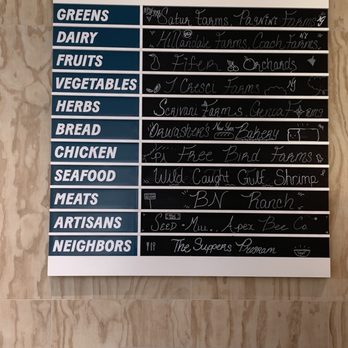 GREENS Satur Farms Farms
DAIRY Hillandale Farms, Coach Farms, NY
FRUITS Fifer Orchards
VEGETABLES J Cresci Farms
HERBS Farms
BREAD Orwashers Bakery
CHICKEN PA Free Bird Farms
SEAFOOD Wild Caught Gulf Shrimp
MEATS BN Ranch
ARTISANS SEED + Apex Bee Co
NEIGHBORS The Suppers Program